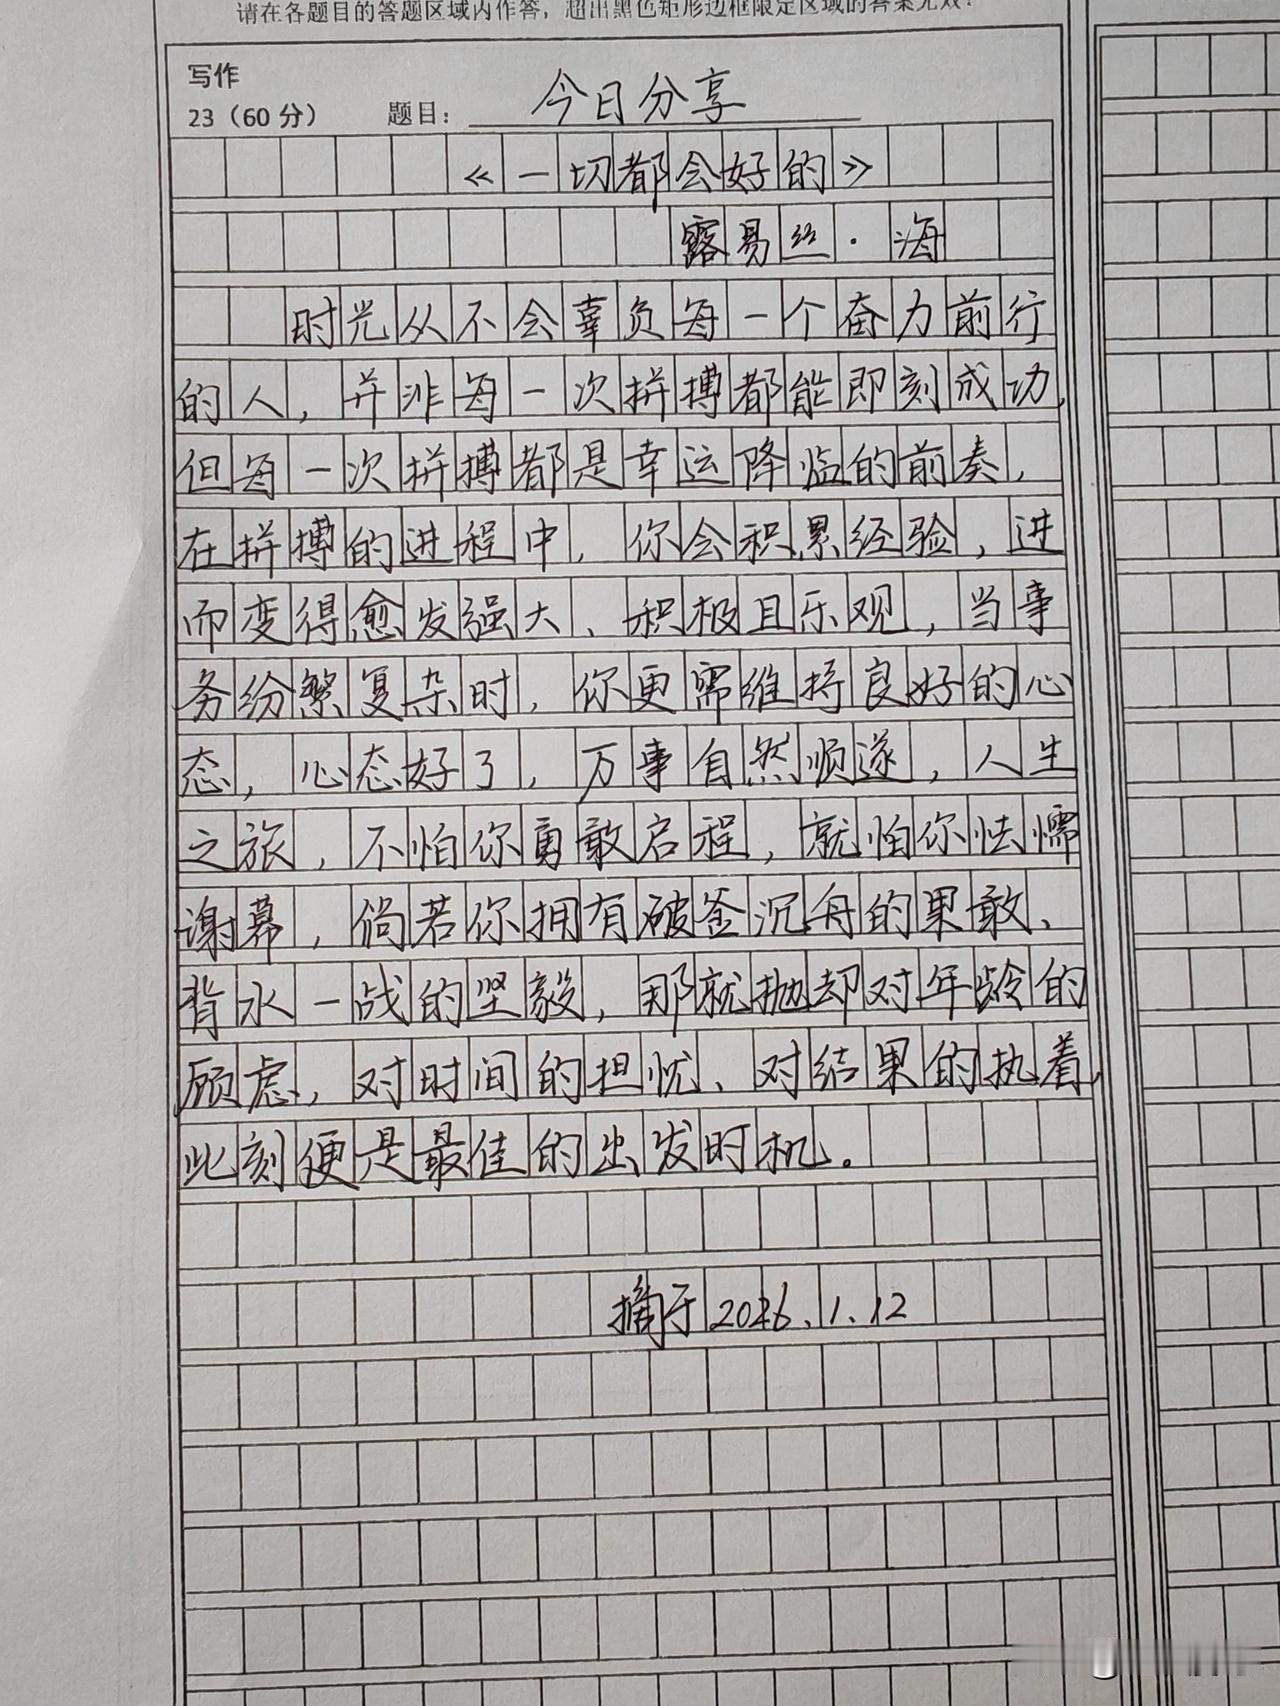 请在各题目的答题区域内作答，超出黑色矩形边框限定区域的答案无效！
写作
23（60 分） 题目：今日分享
《一切都会好的》
露易丝·海
时光从不会辜负每一个奋力前行
的人，并非每一次拼搏都能即刻成功，
但每一次拼搏都是幸运降临的前奏，
在拼搏的进程中，你会积累经验，进
而变得愈发强大、积极且乐观，当事
务纷繁复杂时，你更需维持良好的心
态，心态好了，万事自然顺遂，人生
之旅，不怕你勇敢启程，就怕你怯懦
谢幕，倘若你拥有破釜沉舟的果敢、
背水一战的坚毅，那就抛却对年龄的
顾虑，对时间的担忧、对结果的执着，
此刻便是最佳的出发时机。
摘于2026.1.12